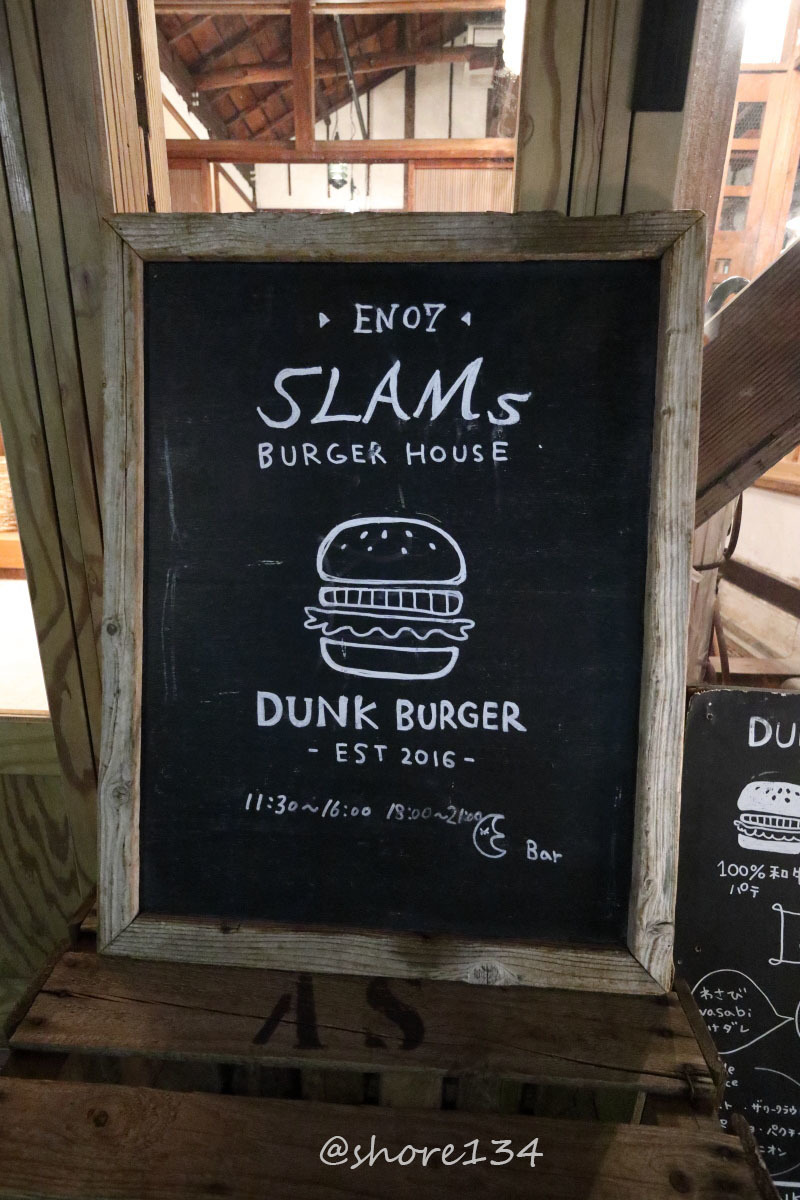 EN07
SLAMs
BURGER HOUSE
DUNK BURGER
- EST 2016 -
11:30~16:00 18:00~21:00
Bar
AS
DU
100% 和牛
パテ
わさび
wasabi
ダレ
ザワークラウ
オン
@shore134